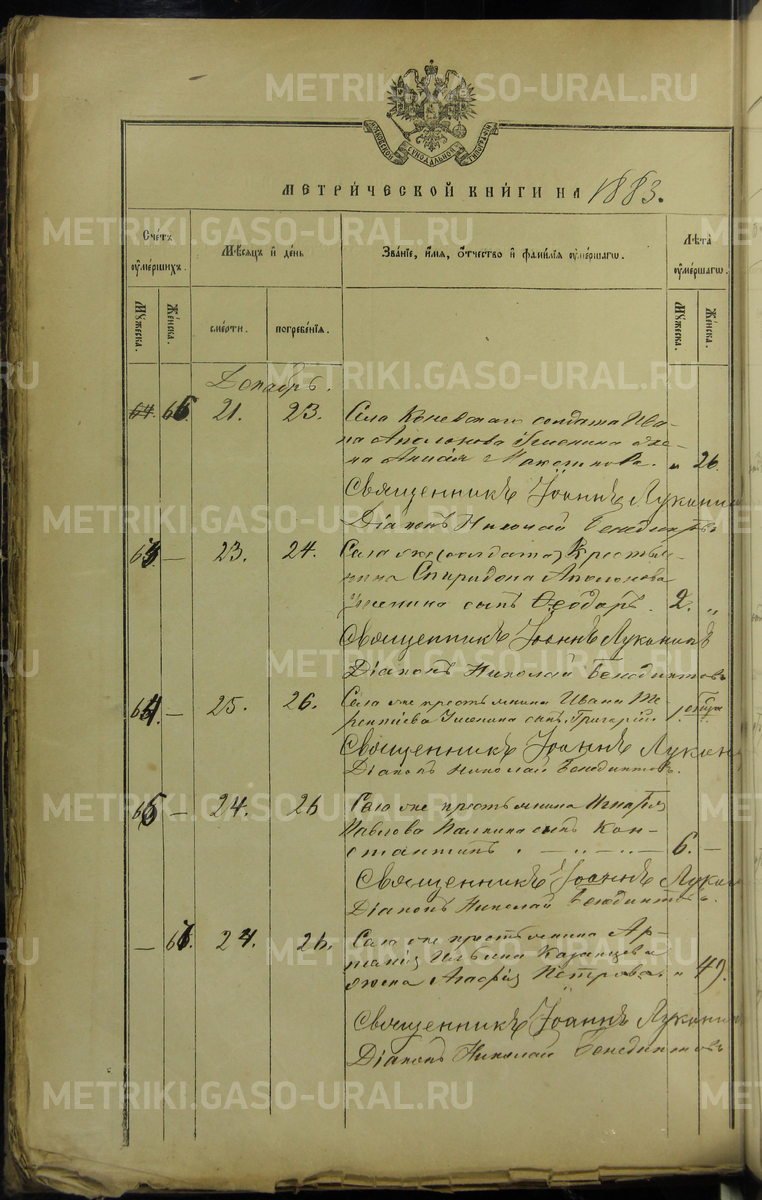 METRIKI.GASO-URAL.RU
МЕТРИ́ЧЕСКОЙ КНИ́ГИ НА 1883.
Счетъ оу҆ме́ршихъ.
Мѣсяцъ и҆ де́нь
Зва́нїе, и҆́мя, ѻ҆́тчество и҆ фами́лїя оу҆ме́ршагѡ.
Лѣ́та оу҆ме́ршагѡ.
Мꙋ́жеска.
Же́нска.
сме́рти.
погребе́нїя.
Мꙋ́жеска.
Же́нска.
Декабрь.
21. 23. Села Коневскаго солдата Ива-
на Аполонова жe-
на Анисія „ 26.
Священникъ Іоаннъ Лукани
Діаконъ Николай Бенедиктовъ
— 23. 24. Села же (солдата) Крестья-
нина Спиридона Аполонова
сынъ Ѳеодоръ. 2. „
Священникъ Іоаннъ Луканинъ
Діаконъ Николай Бенедиктовъ
— 25. 26. Села же крестьянина Ивана Те-
рентіева сынъ Григорій.
Священникъ Іоаннъ Лукани
Діаконъ Николай Бенедиктовъ.
— 24. 26 Села же крестьянина Игнатія
Павлова сынъ Кон-
стантинъ. 6. —
Священникъ Іоаннъ Лукани
Діаконъ Николай Бенедиктовъ.
— 24. 26. Села же крестьянина Ар-
Ильина Казанцева
жена Агафія Петрова „ 49.
Священникъ Іоаннъ Лукани
Діаконъ Николай Бенедиктовъ